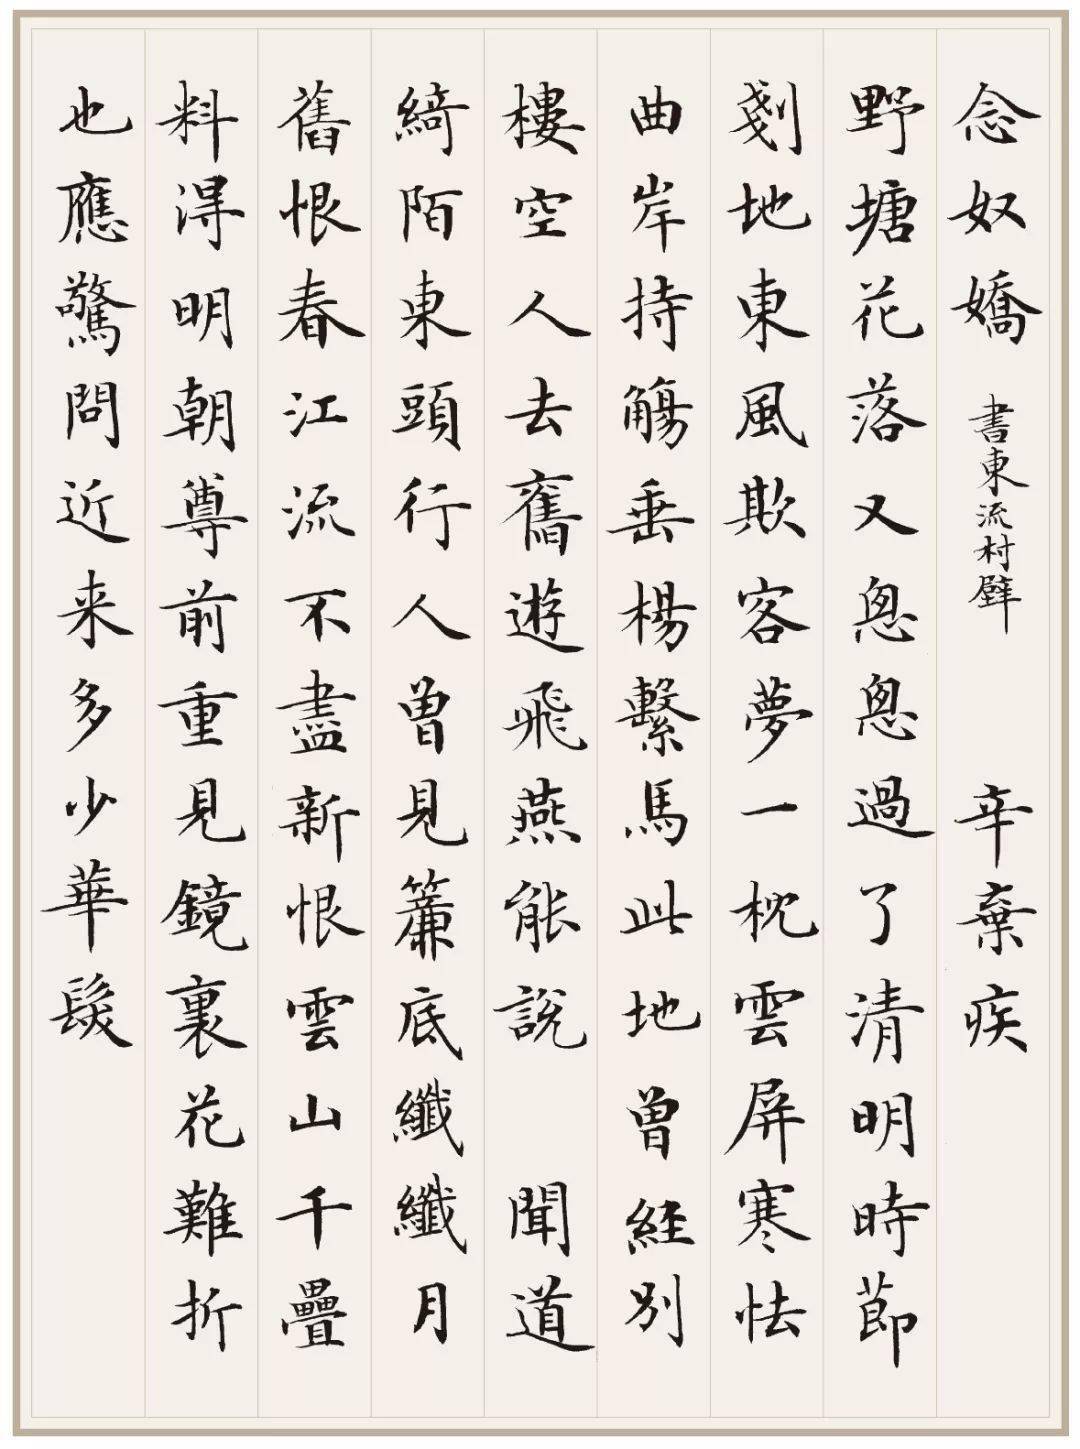 念奴嬌 書東流村壁 辛棄疾
野塘花落又悤悤過了清明時節
剗地東風欺客夢一枕雲屏寒怯
曲岸持觴垂楊繫馬此地曾經別
樓空人去舊遊飛燕能說 聞道
綺陌東頭行人曾見簾底纖纖月
舊恨春江流不盡新恨雲山千疊
料得明朝尊前重見鏡裏花難折
也應驚問近来多少華髮